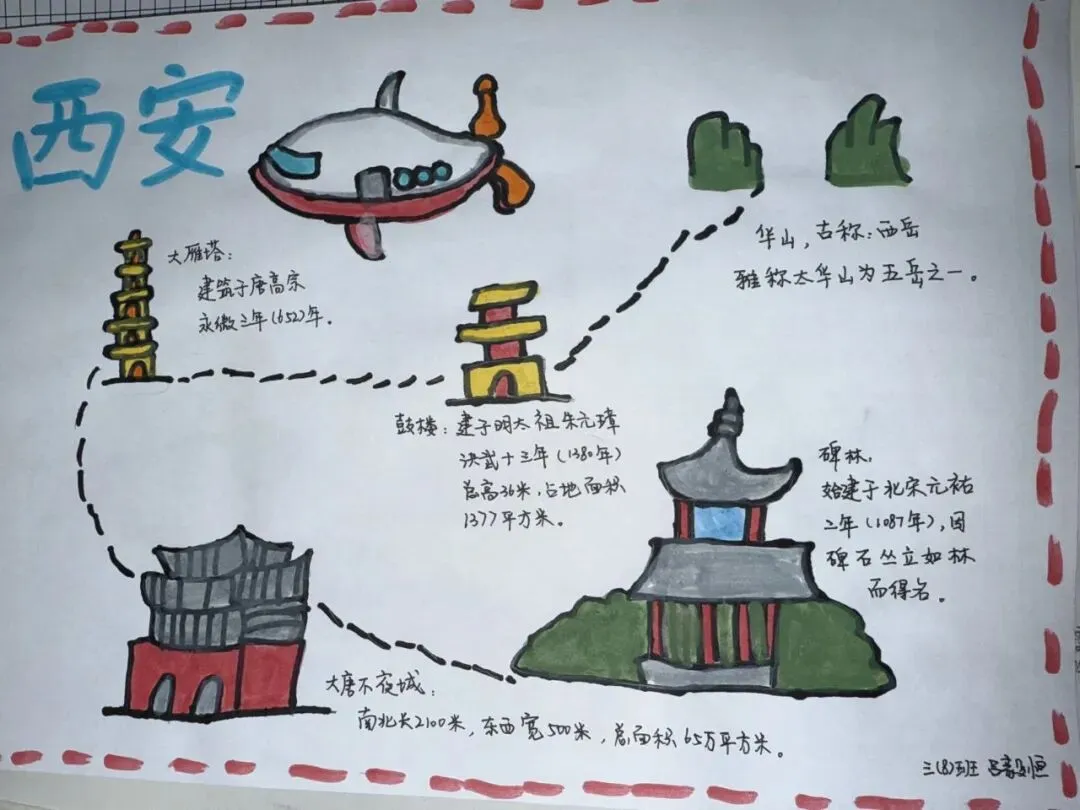 西安
大雁塔：
建筑于唐高宗
永微三年(652)年.
华山，古称：西岳
雅称太华山为五岳之一。
鼓楼：建于明太祖朱元璋
洪武十三年(1380年)
总高36米，占地面积
1377平方米。
碑林，
始建于北宋元祐
二年(1087年)，因
碑石丛立如林
而得名。
大唐不夜城：
南北长2100米，东西宽500米，总面积65万平方米。
三(8)班